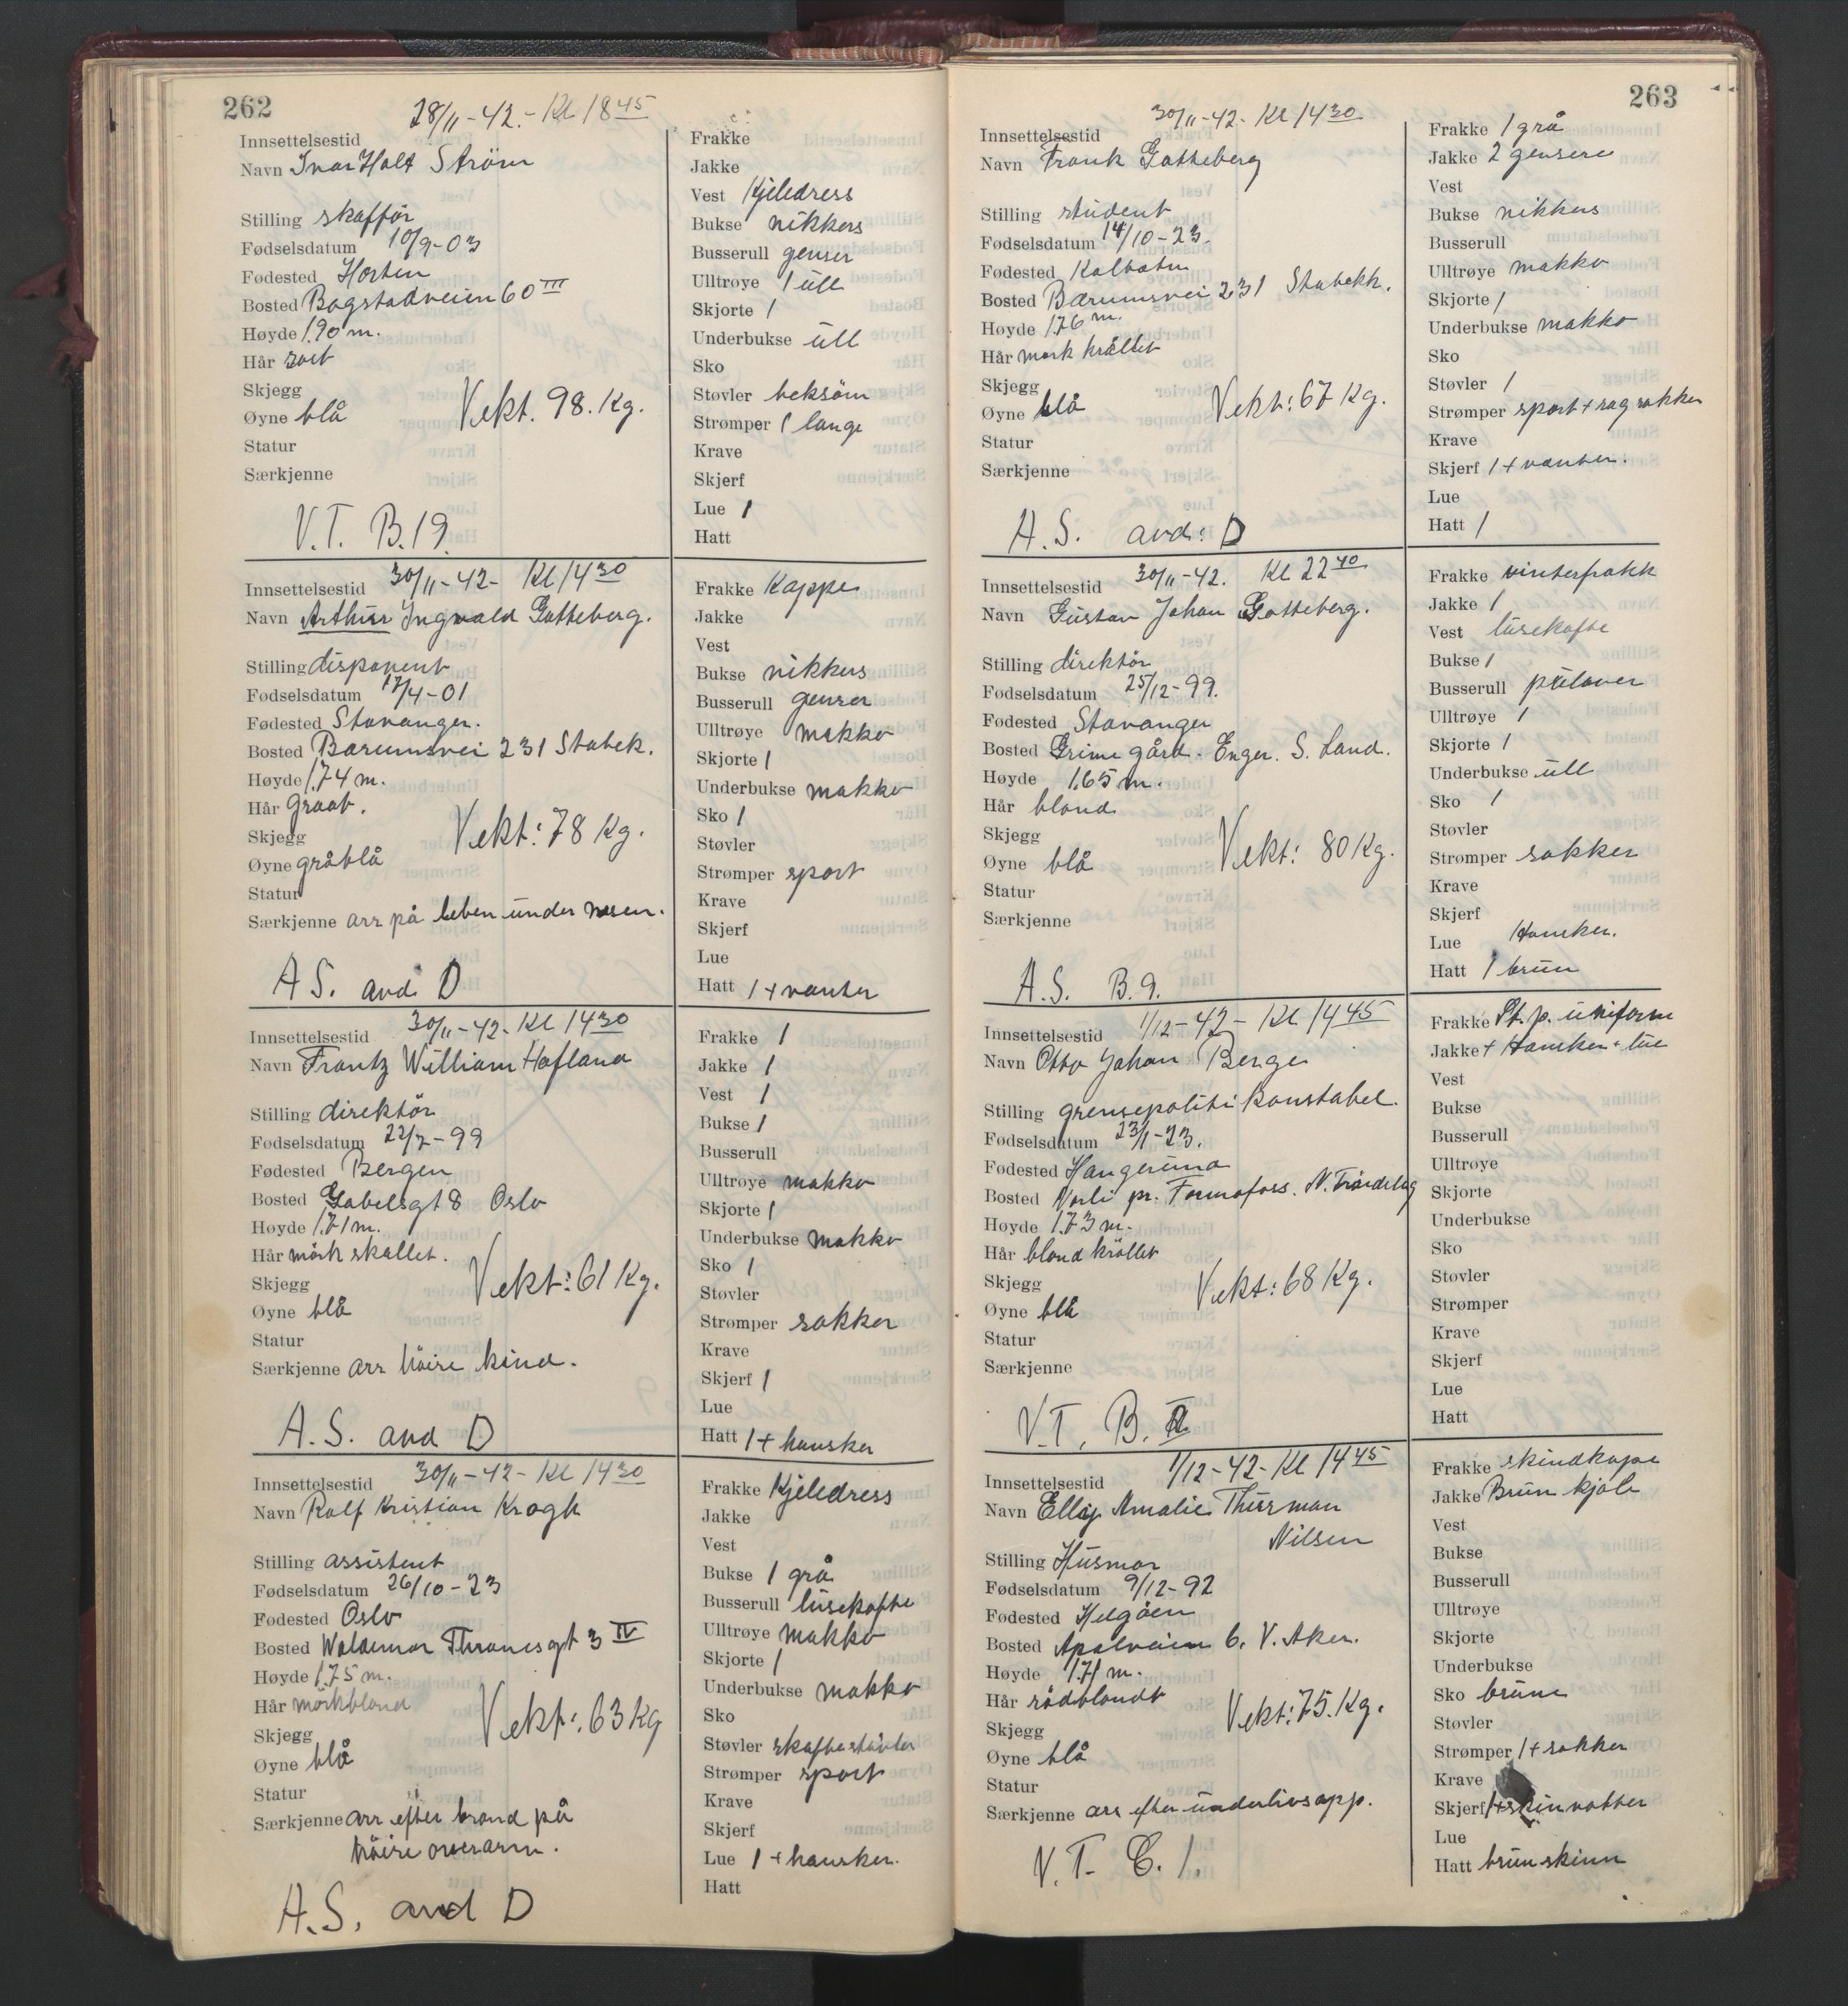 262
Innsettelsestid 28/11-42.- Kl 18 45
Navn Ivar Holt Ström
Stilling skafför
Fødselsdatum 10/9-03
Fødested Horten
Bosted Bogstadveien 60 III
Høyde 1.90 m.
Hår sort
Skjegg
Øyne blå Vekt. 98. Kg.
Statur
Særkjenne
V.T. B.19.
Frakke
Jakke
Vest Kjeledress
Bukse nikkers
Busserull genser
Ulltrøye 1 ull
Skjorte 1
Underbukse ull
Sko
Støvler beksöm
Strømper 1 lange
Krave
Skjerf
Lue 1
Hatt
Innsettelsestid 30/11-42- Kl 14 30
Navn Arthur Ingvald Gotteberg.
Stilling disponent
Fødselsdatum 17/4-01
Fødested Stavanger.
Bosted Bærumsvei 231 Stabek.
Høyde 1.74 m.
Hår Graat.
Skjegg Vekt: 78 Kg.
Øyne gråblå
Statur
Særkjenne arr på leben under nesen.
A.S. avd. D
Frakke Kappe
Jakke
Vest
Bukse nikkers
Busserull genser
Ulltrøye makko
Skjorte 1
Underbukse makko
Sko 1
Støvler
Strømper sport
Krave
Skjerf
Lue
Hatt 1 + vanter
Innsettelsestid 30/11-42- Kl 14 30
Navn Frantz William Hofland
Stilling direktör
Fødselsdatum 22/7-99
Fødested Bergen
Bosted Gabelsgt 8 Oslo
Høyde 1.71 m.
Hår mörk skallet.
Skjegg Vekt: 61 Kg.
Øyne blå
Statur
Særkjenne arr höire kind.
A.S. avd D
Frakke 1
Jakke 1
Vest 1
Bukse 1
Busserull
Ulltrøye makko
Skjorte 1
Underbukse makko
Sko 1
Støvler
Strømper sokker
Krave
Skjerf 1
Lue
Hatt 1 + hansker
Innsettelsestid 30/11-42- Kl 14 30
Navn Rolf Kristian Krogh
Stilling assistent
Fødselsdatum 26/10-23
Fødested Oslo
Bosted Waldemar Thranesgt 3 IV
Høyde 1.75 m.
Hår mörkblond
Skjegg Vekt: 63 Kg
Øyne blå
Statur
Særkjenne arr efter brand på
höire overarm.
A.S. avd D
Frakke Kjeledress
Jakke
Vest
Bukse 1 grå
Busserull lusekofte
Ulltrøye makko
Skjorte 1
Underbukse makko
Sko
Støvler skaftestövler
Strømper sport
Krave
Skjerf
Lue 1 + hansker.
Hatt
263
Innsettelsestid 30/11-42- Kl 14 30
Navn Frank Gotteberg
Stilling student
Fødselsdatum 14/10-23.
Fødested Kolbotn
Bosted Bærumsvei 231 Stabekk.
Høyde 1.76 m.
Hår mörk kröllet
Skjegg
Øyne blå Vekt: 67 Kg.
Statur
Særkjenne
A.S. avd: D
Frakke 1 grå
Jakke 2 gensere
Vest
Bukse nikkers
Busserull
Ulltrøye makko
Skjorte 1
Underbukse makko
Sko
Støvler 1
Strømper sport + ragsokker
Krave
Skjerf 1 + vanter.
Lue
Hatt 1
Innsettelsestid 30/11-42. Kl 22 40
Navn Gustav Johan Gotteberg.
Stilling direktör
Fødselsdatum 25/12-99.
Fødested Stavanger
Bosted Grime gård. Enger. S. Land.
Høyde 1,65 m.
Hår blond
Skjegg
Øyne blå Vekt: 80 Kg.
Statur
Særkjenne
A.S. B.9.
Frakke vinterfrakk
Jakke 1
Vest lusekofte
Bukse 1
Busserull pulover
Ulltrøye 1
Skjorte 1
Underbukse ull
Sko 1
Støvler
Strømper sokker
Krave
Skjerf
Lue Hansker.
Hatt 1 brun
Innsettelsestid 1/12-42- Kl 14 45
Navn Otto Johan Berge
Stilling grensepoliti konstabel.
Fødselsdatum 23/1-23.
Fødested
Bosted Norli pr. Formofoss. N. Tröndelag
Høyde 1.73 m.
Hår blond kröllet
Skjegg
Øyne blå Vekt: 68 Kg.
Statur
Særkjenne
V.T. B.
Frakke St. p. uniform
Jakke + Hansker + lue
Vest
Bukse
Busserull
Ulltrøye
Skjorte
Underbukse
Sko
Støvler
Strømper
Krave
Skjerf
Lue
Hatt
Innsettelsestid 1/12-42- Kl 14 45
Navn Amalie Thurman
Nilsen
Stilling Husmor
Fødselsdatum 9/12-92
Fødested Helgöen
Bosted Apalveien 6. V. Aker.
Høyde 1.71 m.
Hår rödblondt
Skjegg Vekt: 75. Kg.
Øyne blå
Statur
Særkjenne arr efter underlivsopp.
V.T. C.1.
Frakke skindkape
Jakke Brun kjole
Vest
Bukse
Busserull
Ulltrøye
Skjorte
Underbukse
Sko brune
Støvler
Strømper 1 + sokker
Krave
Skjerf 1 + skinvotter
Lue
Hatt brun skinn